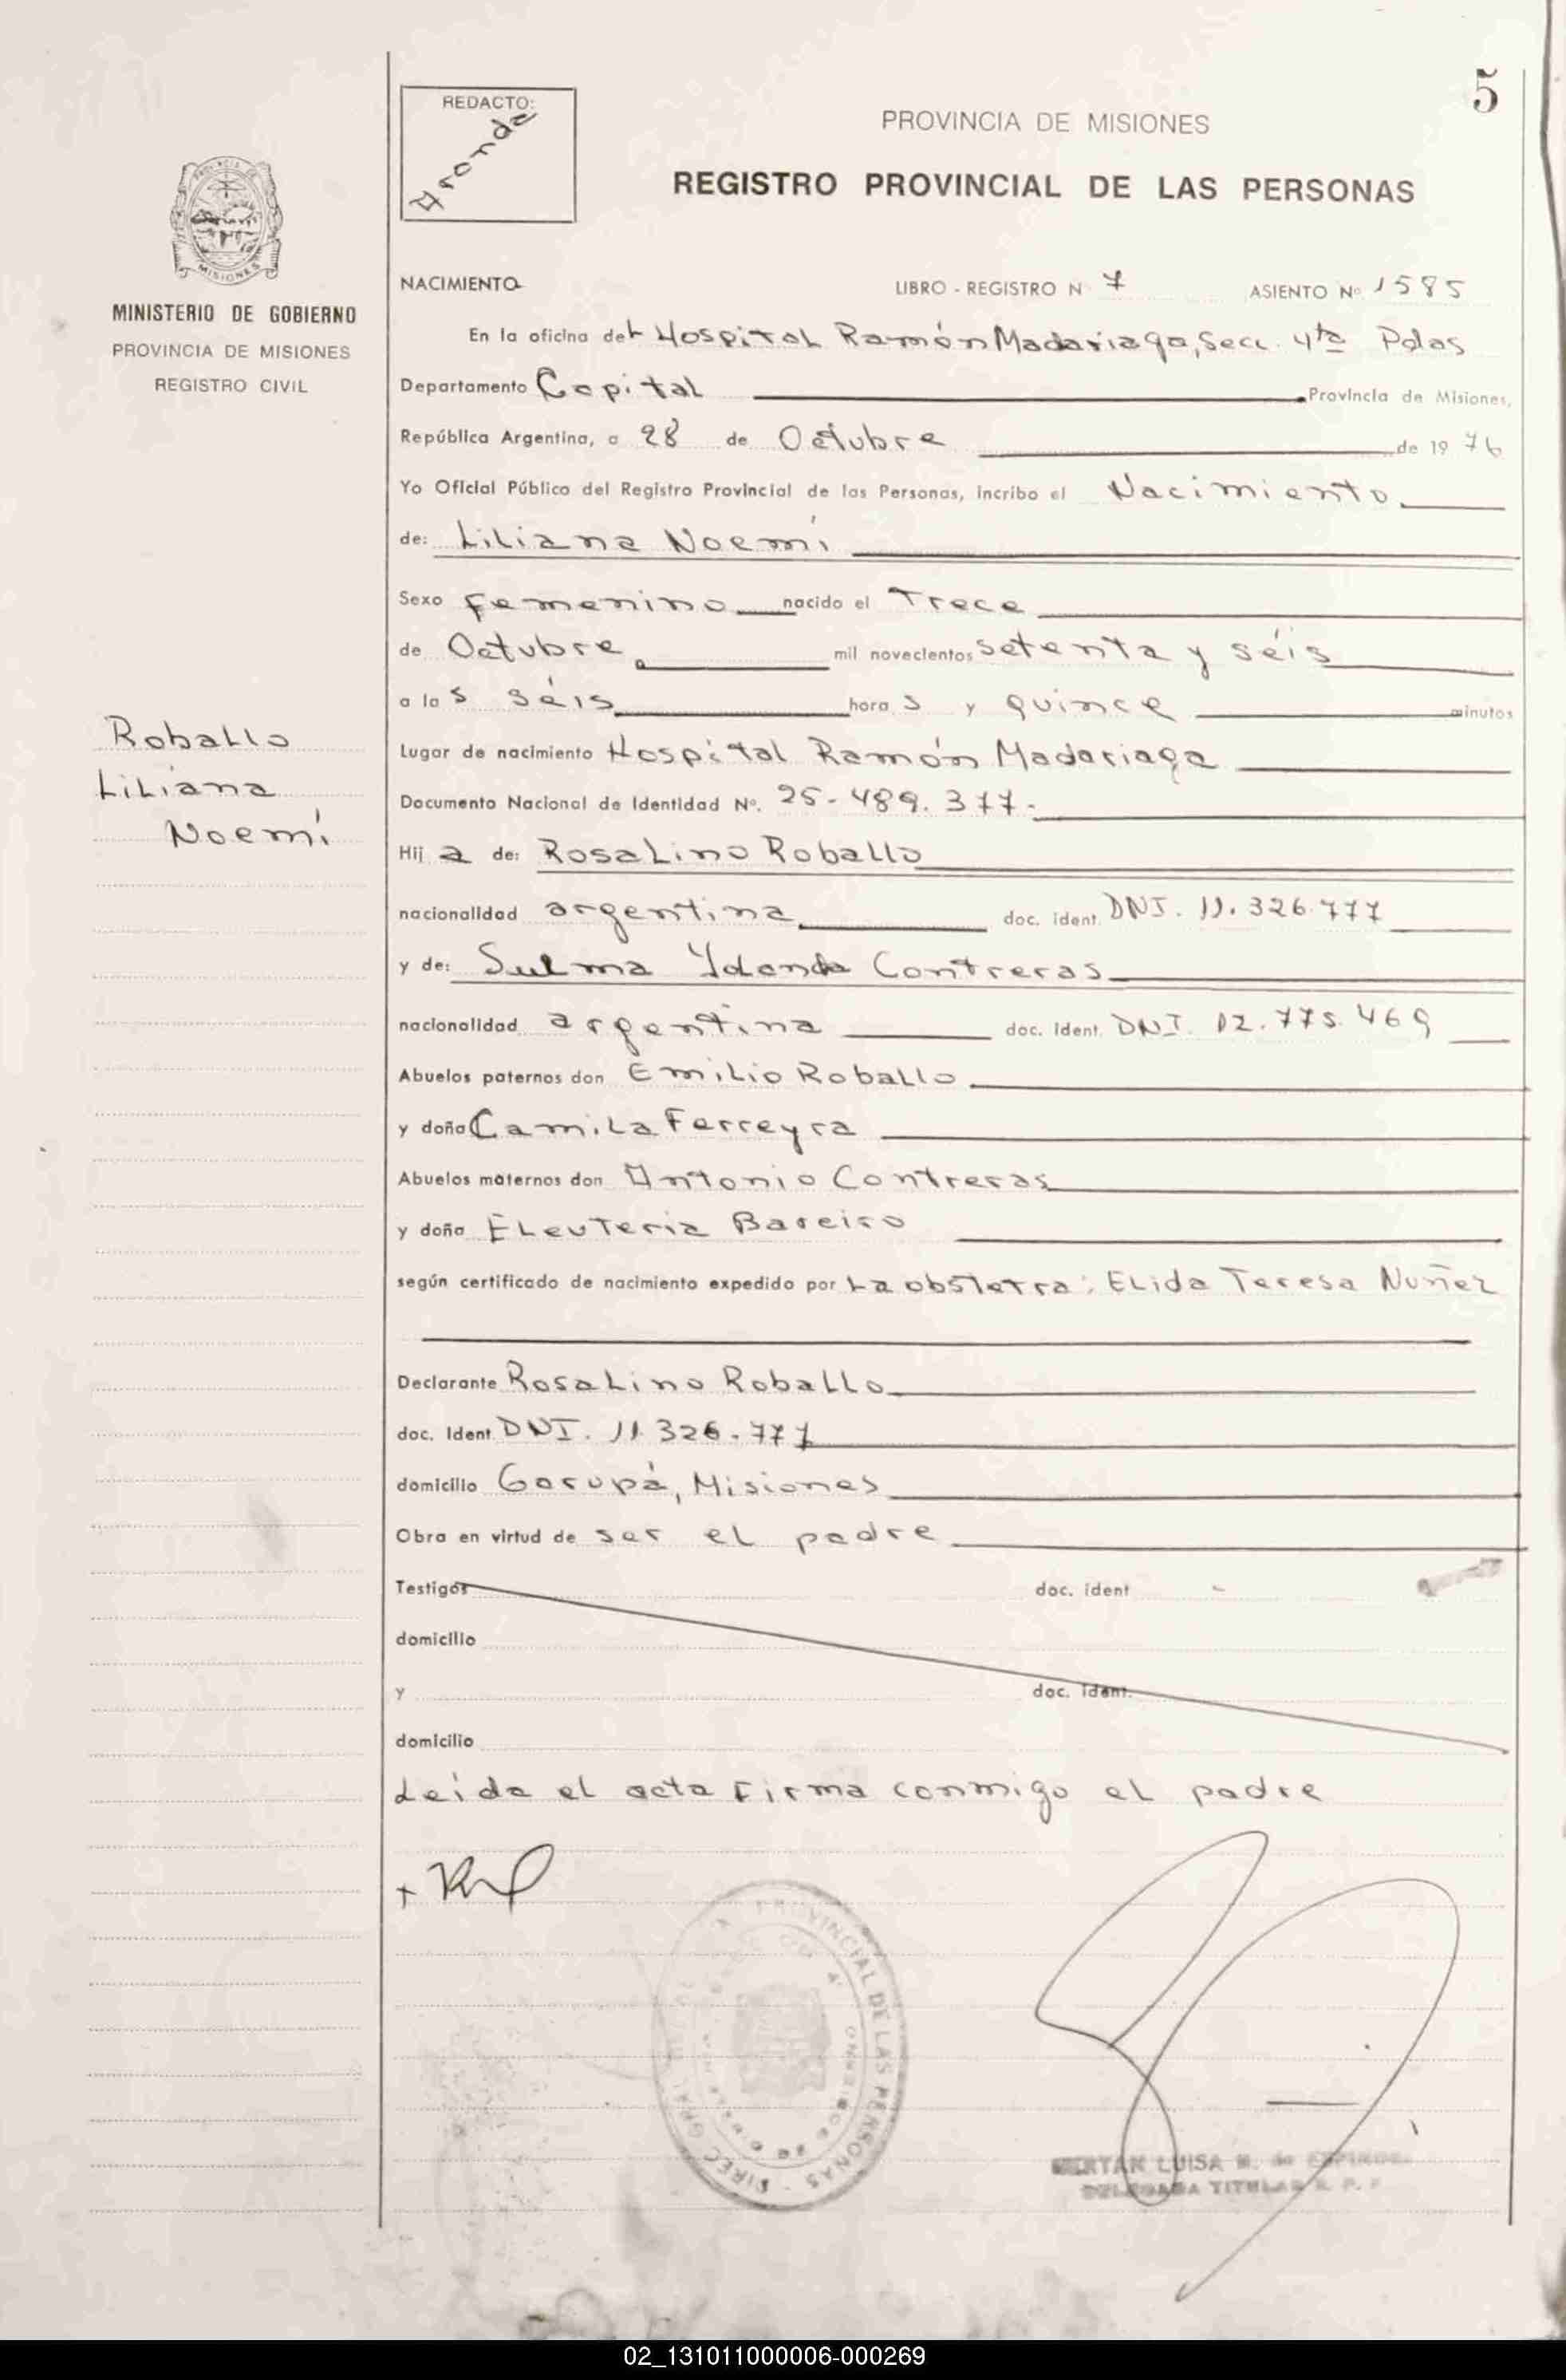 5
REDACTO:
Aronda
PROVINCIA DE MISIONES
REGISTRO PROVINCIAL DE LAS PERSONAS
MISIONES
MINISTERIO DE GOBIERNO
PROVINCIA DE MISIONES
REGISTRO CIVIL
NACIMIENTO LIBRO - REGISTRO N 7 ASIENTO Nº 1585
En la oficina del Hospital Ramón Madariaga, Secc. 4ta Pdas
Departamento Capital Provincia de Misiones,
República Argentina, a 28 de Octubre de 1976
Yo Oficial Público del Registro Provincial de las Personas, incribo el Nacimiento
de: Liliana Noemí
Sexo femenino nacido el Trece
de Octubre mil novecientos setenta y séis
a las séis horas y quince minutos
Roballo
Liliana
Noemí
Lugar de nacimiento Hospital Ramón Madariaga
Documento Nacional de Identidad Nº. 25-489.377-
Hija de: Rosalino Roballo
nacionalidad argentina doc. ident. DNI. 11.326.777
y de: Sulma Yolanda Contreras
nacionalidad argentina doc. Ident. DNI. 12.775.469
Abuelos paternos don Emilio Roballo
y doña Camila Ferreyra
Abuelos maternos don Antonio Contreras
y doña Eleuteria Bareiro
según certificado de nacimiento expedido por La obstetra: Elida Teresa Nuñez
Declarante Rosalino Roballo
doc. Ident DNI. 11.326.777
domicilio Garupá, Misiones
Obra en virtud de ser el padre
Testigos doc. ident
domicilio
y doc. ident.
domicilio
Leída el acta firma conmigo el padre
PROVINCIAL DE LAS PERSONAS - DIREC GRAL
LUISA M. de
DELEGADA TITULAR R. P. P.
02_131011000006-000269